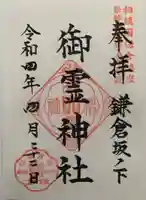 奉拝
鎌倉坂ノ下
御霊神社
令和四年四月二十二日